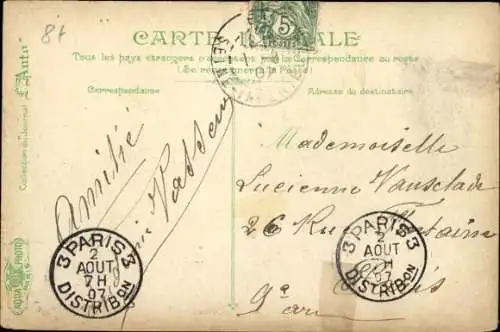 8t
CARTE POSTALE
5
Tous les pays étrangers n'acceptent pas la Correspondance au recto
(Se renseigner à la Poste)
Correspondance
Adresse du destinataire
Collection du Journal L'Auto
PHOTO
Amitié
Mademoiselle
Lucienne
26 Rue Fontaine
Paris
9e arr
3 PARIS 3
2
AOUT
7H
07
DISTRIBON
3 PARIS 3
2
AOUT
H
07
DISTRIBON